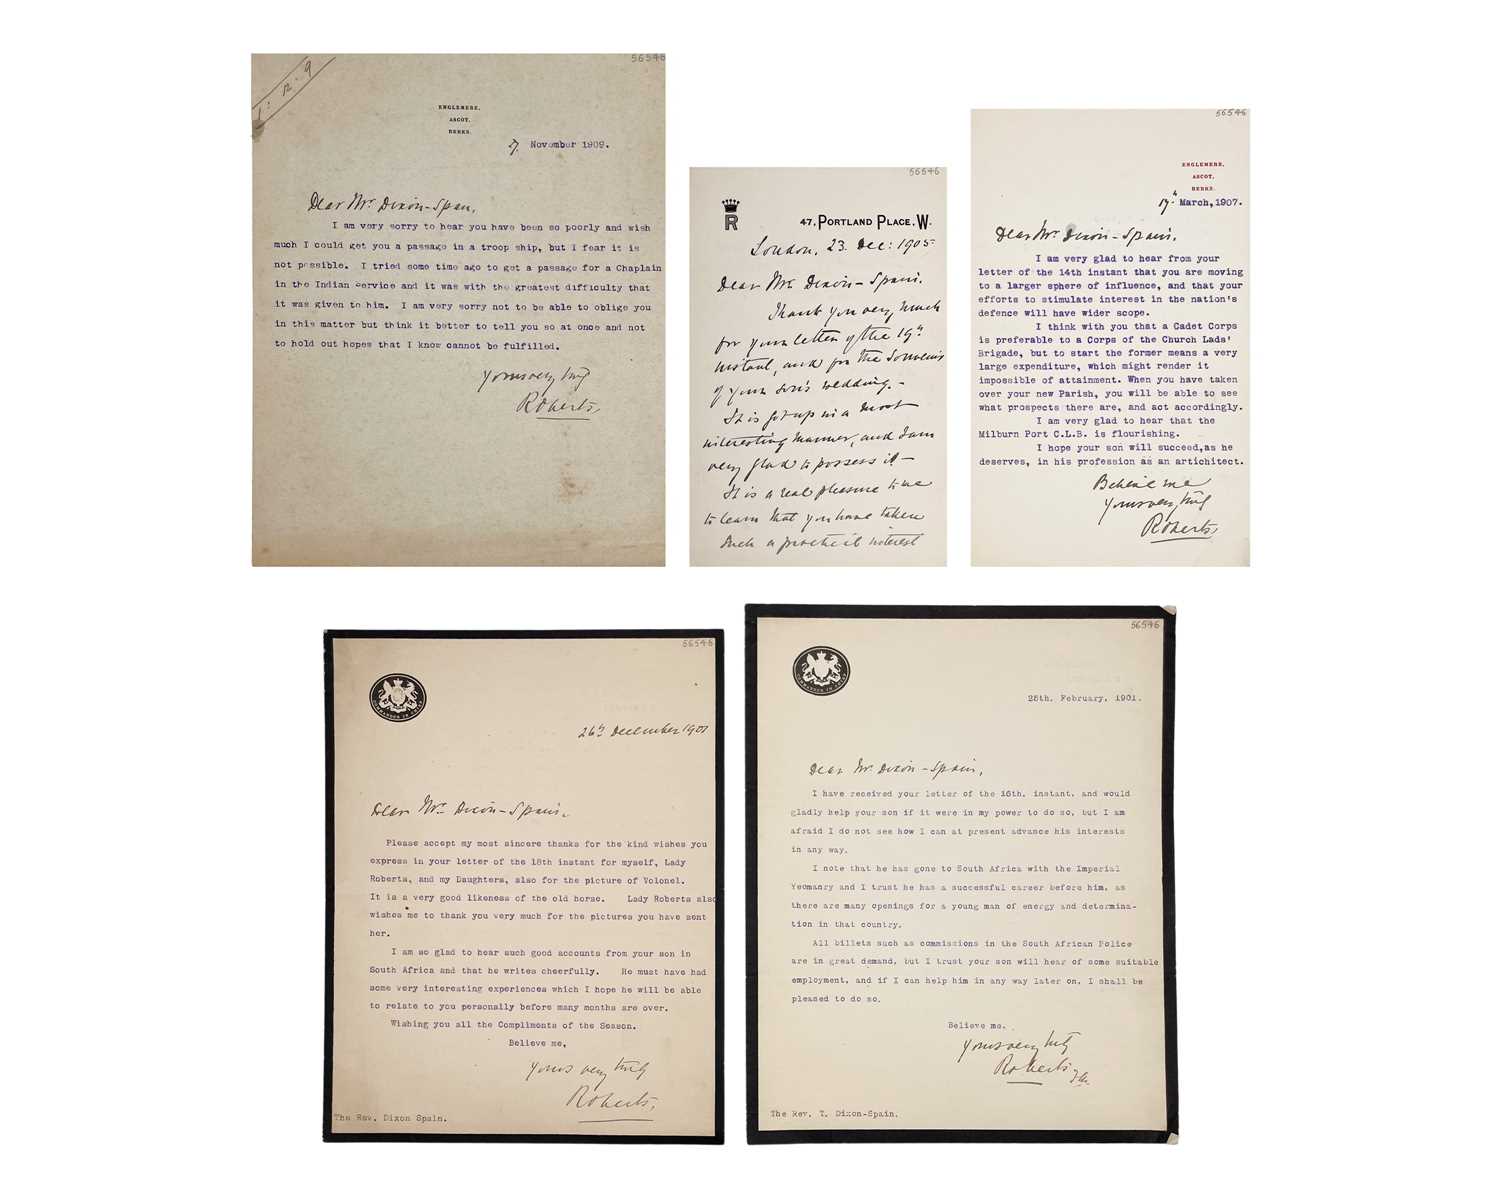 56546
1: 12: 9
ENGLEMERE,
ASCOT,
BERKS.
November 1909.
Dear Mr. Dixon-Spain,
I am very sorry to hear you have been so poorly and wish
much I could get you a passage in a troop ship, but I fear it is
not possible. I tried some time ago to get a passage for a Chaplain
in the Indian Service and it was with the greatest difficulty that
it was given to him. I am very sorry not to be able to oblige you
in this matter but think it better to tell you so at once and not
to hold out hopes that I know cannot be fulfilled.
Yours very truly
Roberts,
56546
R
47, PORTLAND PLACE, W.
London, 23 Dec: 1905
Dear Mr Dixon-Spain,
Thank you very much
for your letter of the 19th
instant, and for the souvenir
of your son's wedding. -
It is got up in a most
interesting manner, and I am
very glad to possess it -
It is a real pleasure to me
to learn that you have taken
such a practical interest
56546
ENGLEMERE,
ASCOT,
BERKS.
17th March, 1907.
Dear Mr. Dixon-Spain,
I am very glad to hear from your
letter of the 14th instant that you are moving
to a larger sphere of influence, and that your
efforts to stimulate interest in the nation's
defence will have wider scope.
I think with you that a Cadet Corps
is preferable to a Corps of the Church Lads'
Brigade, but to start the former means a very
large expenditure, which might render it
impossible of attainment. When you have taken
over your new Parish, you will be able to see
what prospects there are, and act accordingly.
I am very glad to hear that the
Milburn Port C.L.B. is flourishing.
I hope your son will succeed,as he
deserves, in his profession as an artichitect.
Believe me
Yours very truly
Roberts,
56546
COMMANDER IN CHIEF
26th December 1901
Dear Mr. Dixon-Spain,
Please accept my most sincere thanks for the kind wishes you
express in your letter of the 18th instant for myself, Lady
Roberts, and my Daughters, also for the picture of Volonel.
It is a very good likeness of the old horse. Lady Roberts also
wishes me to thank you very much for the pictures you have sent
her.
I am so glad to hear such good accounts from your son in
South Africa and that he writes cheerfully. He must have had
some very interesting experiences which I hope he will be able
to relate to you personally before many months are over.
Wishing you all the Compliments of the Season.
Believe me,
Yours very truly
Roberts,
The Rev. Dixon Spain.
56546
COMMANDER IN CHIEF
28th. February, 1901.
Dear Mr. Dixon-Spain,
I have received your letter of the 16th. instant, and would
gladly help your son if it were in my power to do so, but I am
afraid I do not see how I can at present advance his interests
in any way.
I note that he has gone to South Africa with the Imperial
Yeomanry and I trust he has a successful career before him, as
there are many openings for a young man of energy and determina-
tion in that country.
All billets such as commissions in the South African Police
are in great demand, but I trust your son will hear of some suitable
employment, and if I can help him in any way later on, I shall be
pleased to do so.
Believe me.
Yours very truly
Roberts
The Rev. T. Dixon-Spain.